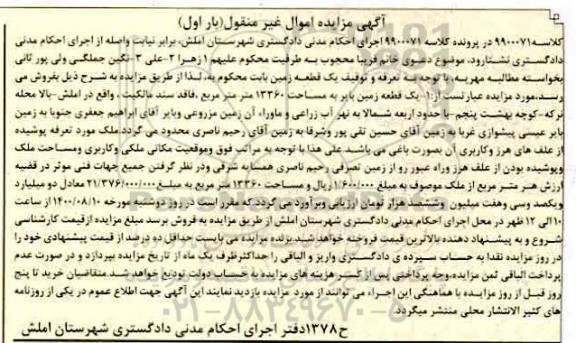 آگهی مزایده اموال غیر منقول(بار اول)
کلاسه۹۹۰۰۰۷۱ در پرونده کلاسه ۹۹۰۰۰۷۱ اجرای احکام مدنی دادگستری شهرستان املش، برابر نیابت واصله از اجرای احکام مدنی
دادگستری نشتارود، موضوع دعوی خانم فریبا محجوب به طرفیت محکوم علیهم ۱زهرا ۲-علی ۳-نگین جملگی ولی پور ثانی
بخواسته مطالبه مهریه، با توجه به تعرفه و توقیف یک قطعه زمین بابت محکوم به، لذا از طریق مزایده به شرح ذیل بفروش می
رسد،مورد مزایده عبارتست از:۱-یک قطعه زمین بایر به مساحت ۱۳۳۶۰ متر متر مربع ،فاقد سند مالکیت ، واقع در املش-بالا محله
نرکه-کوچه بهشت پنجم-با حدود اربعه شمالا به نهر آب زراعی و ماوراء آن زمین مزروعی وبایر آقای ابراهیم جعفری جنوبا به زمین
بایر عیسی پیشوازی غربا به زمین آقای حسین تقی پور وشرقا به زمین آقای رحیم ناصری محدود می گردد ملک مورد تعرفه پوشیده
از علف های هرز وکاربری آن بصورت باغی می باشد علی هذا با توجه به مراتب فوق وموقعیت مکانی ملکی وکاربری ومساحت ملک
وپوشیده بودن از علف هرز وراه عبور رو از زمین تصرفی رحیم ناصری همسایه شرقی ودر نظر گرفتن جمیع جهات فنی موثر در قضیه
ارزش هر متر مربع از ملک موصوف به مبلغ ۱/۶۰۰/۰۰۰ ریال و مساحت ۱۳۳۶۰ متر مربع به مبلغ ۲۱/۳۷۶/۰۰۰/۰۰۰ معادل دو میلیارد
ویکصد وسی وهفت میلیون وششصد هزار تومان ارزیابی وبرآورد می گردد که مقرر است در روز دوشنبه مورخه ۱۴۰۰/۰۸/۱۰ از ساعت
۱۰ الی ۱۲ ظهر در محل اجرای احکام مدنی دادگستری شهرستان املش از طریق مزایده به فروش برسد مبلغ مزایده ازقیمت کارشناسی
شروع و به پیشنهاد دهنده بالاترین قیمت فروخته خواهد شد برنده مزایده می بایست حداقل ده درصد از قیمت پیشنهادی خود را
در روز مزایده نقدا به حساب سپرده ی دادگستری واریز و الباقی را حداکثر ظرف یک ماه از تاریخ مزایده بپردازد و در صورت عدم
پرداخت الباقی ثمن مزایده وجه پرداختی پس از کسر هزینه های مزایده به حساب دولت تودیع خواهد شد متقاضیان خرید تا پنج
روز قبل از روز مزایده با هماهنگی این اجراء می توانند از مورد مزایده بازدید نمایند این آگهی جهت اطلاع عموم در یکی از روزنامه
های کثیر الانتشار محلی منتشر میگردد.
ح۱۳۷۸دفتر اجرای احکام مدنی دادگستری شهرستان املش
۰۲۱-۸۸۳۴۹۶۷۰-۵